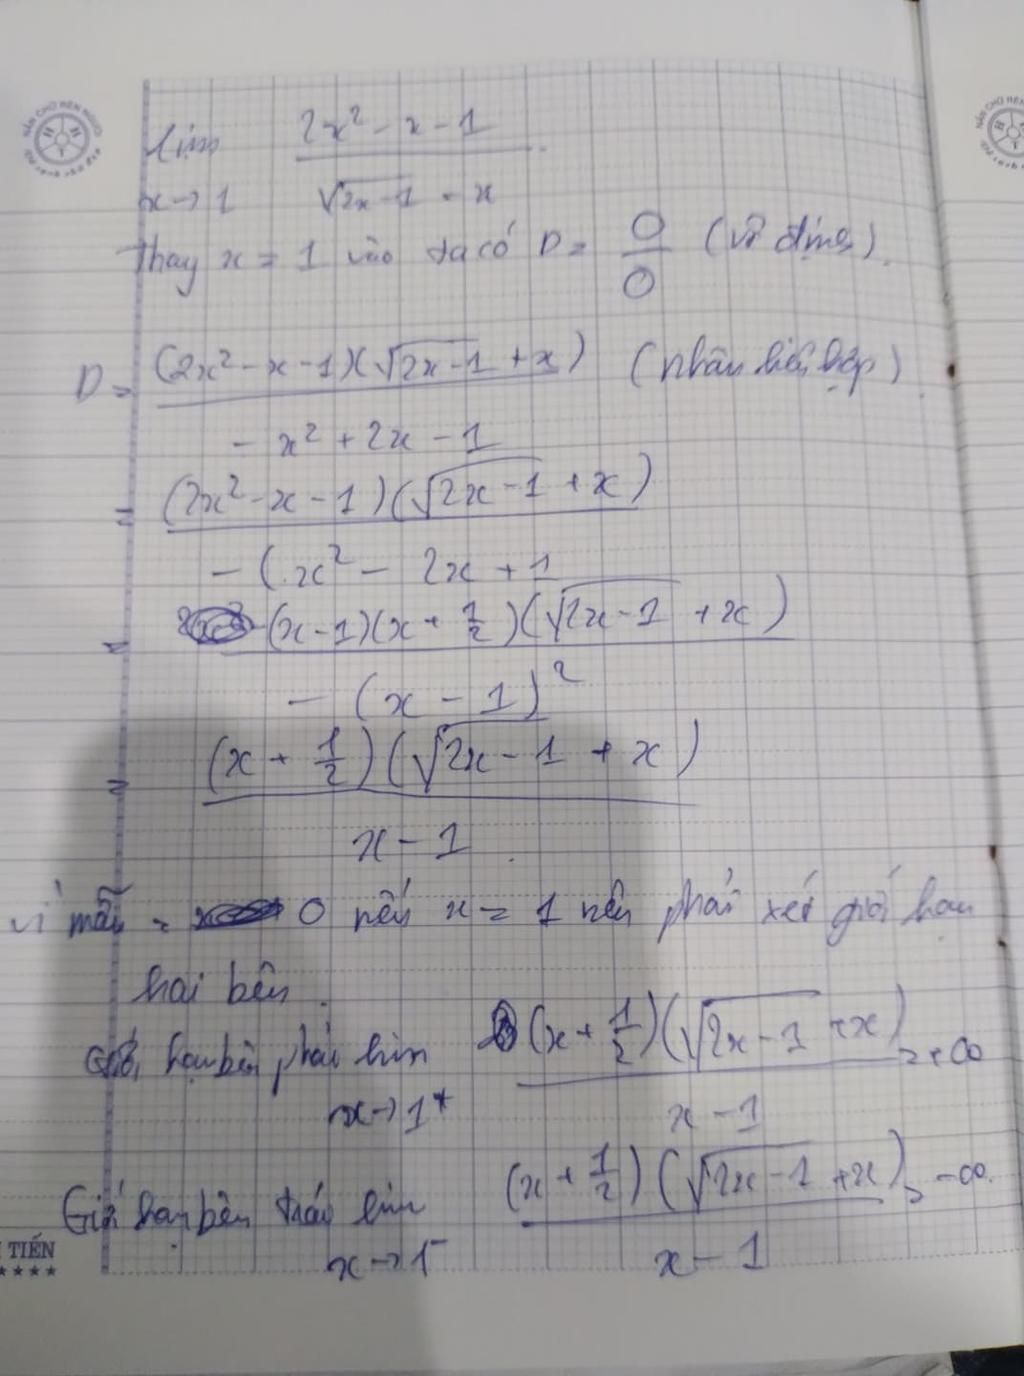 lim 2x² - x - 1 / √(2x-1) - x
x→1
Thay x = 1 vào ta có D = 0/0 (vô định).
D = (2x² - x - 1)(√(2x-1) + x) / - x² + 2x - 1 (nhân liên hợp)
= (2x² - x - 1)(√(2x-1) + x) / - (x² - 2x + 1
= (x-1)(x + 1/2)(√(2x-1) + x) / - (x - 1)²
= (x + 1/2)(√(2x-1) + x) / x - 1
vì mẫu = 0 nếu x = 1 nên phải xét giới hạn
hai bên.
Giới hạn bên phải lim (x + 1/2)(√(2x-1) + x) / x - 1 = +∞
x→1⁺
Giới hạn bên trái lim (x + 1/2)(√(2x-1) + x) / x - 1 = -∞.
x→1⁻
TIẾN